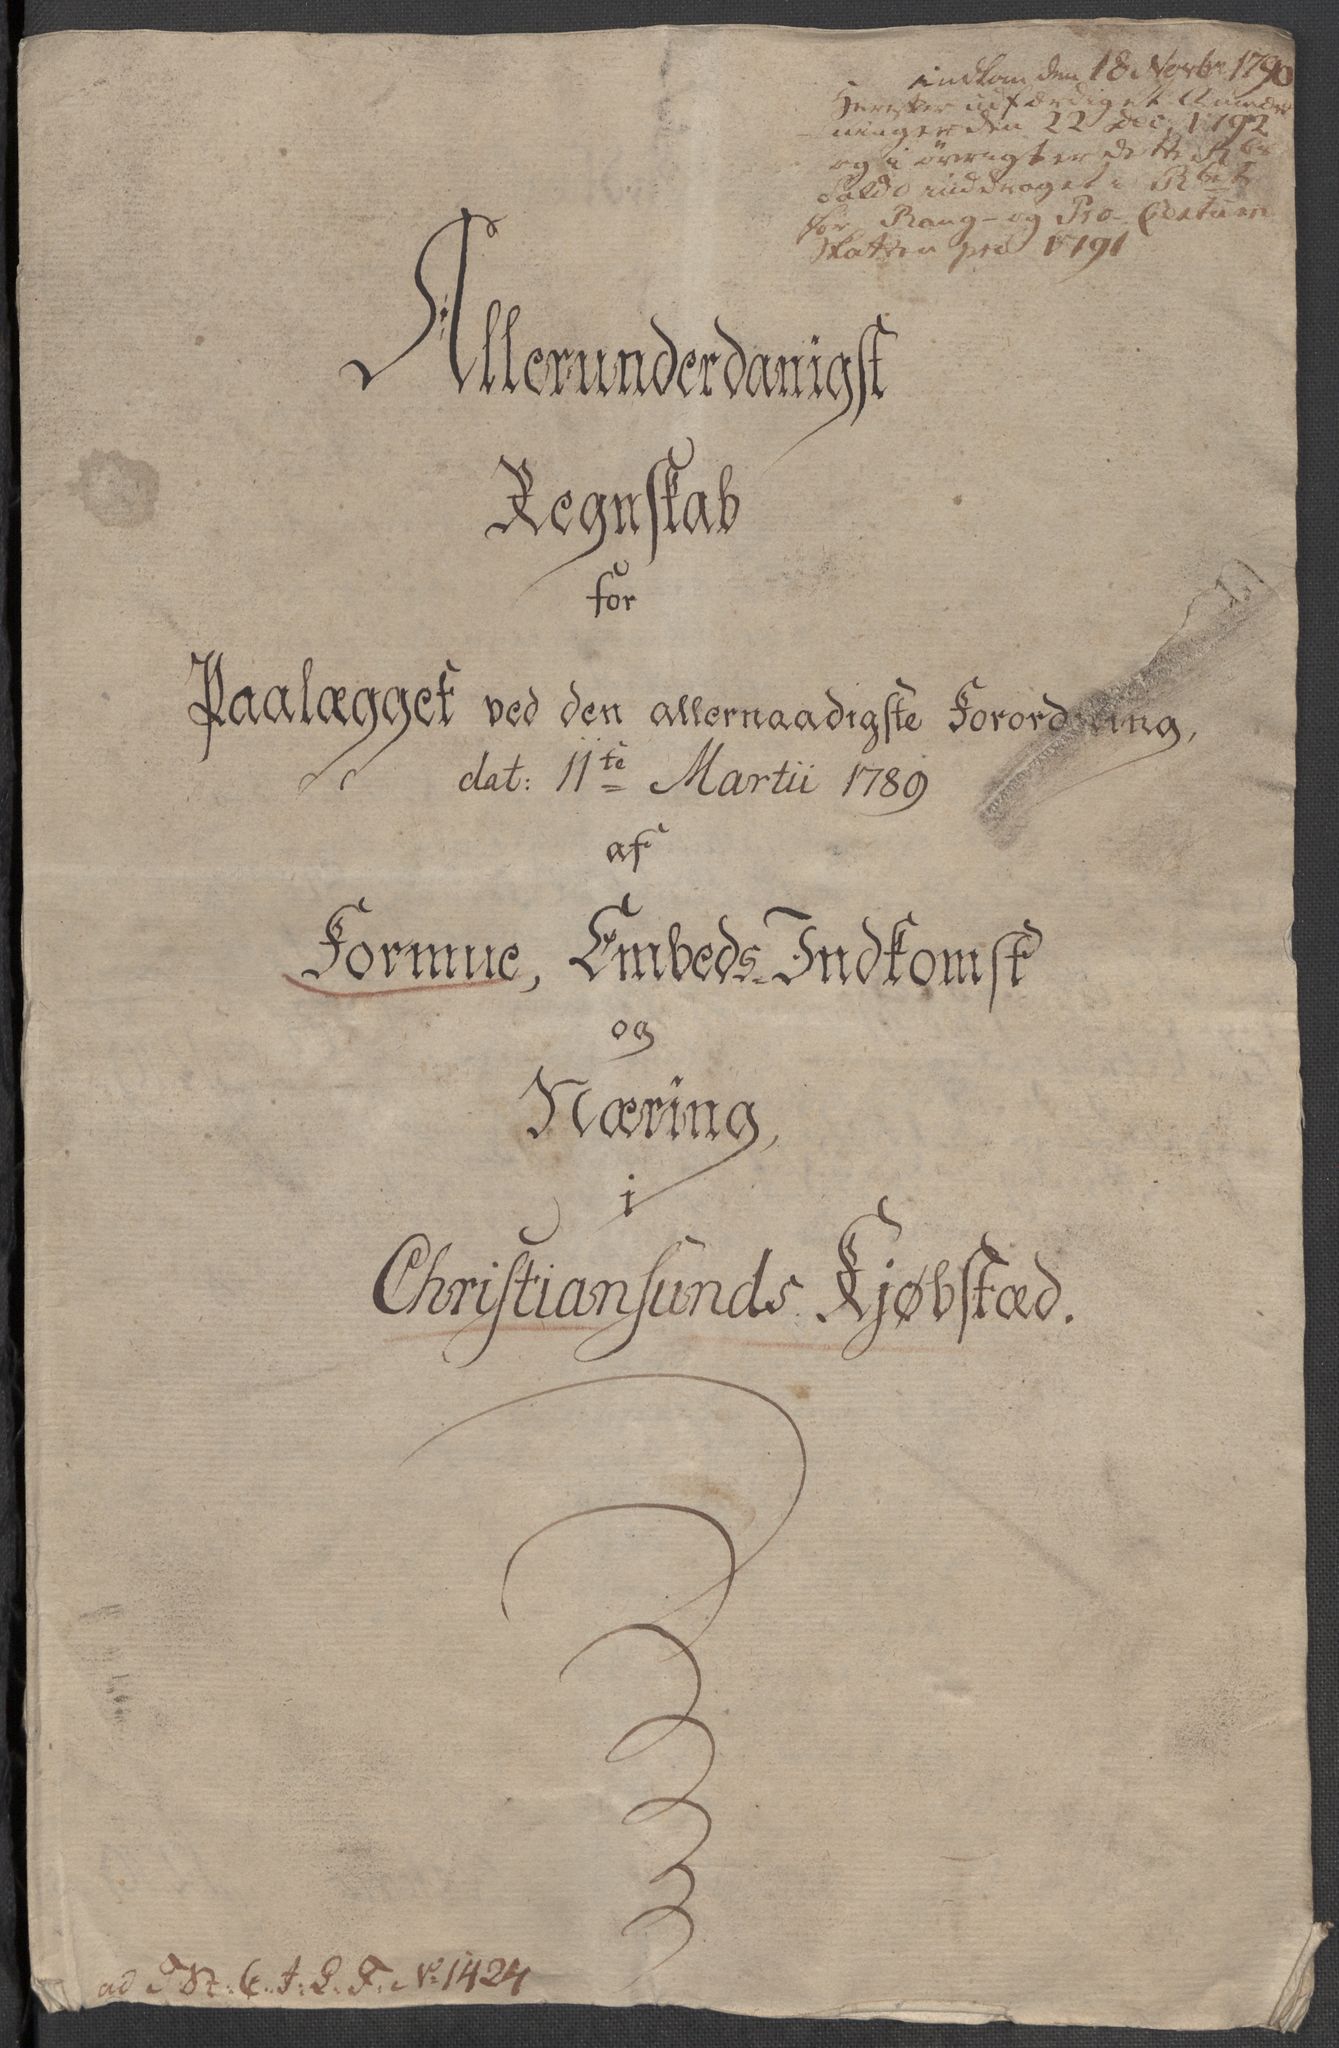 indkom den 18 Novbr 1790
Herefter udfærdiget Antegn
ninger den 22 Dec: 1792
og i øvrigt er dette
Saldo inddraget i
for Rang- og Pro-
Skatten pro 1791
Allerunderdanigst
Regnskab
for
Paalægget ved den allernaadigste Forordning,
dat: 11te Martii 1789
af
Formue, Embeds-Indkomst
og
Næring,
i
Christiansunds Kjøbstæd.
1.)
ad No 1424